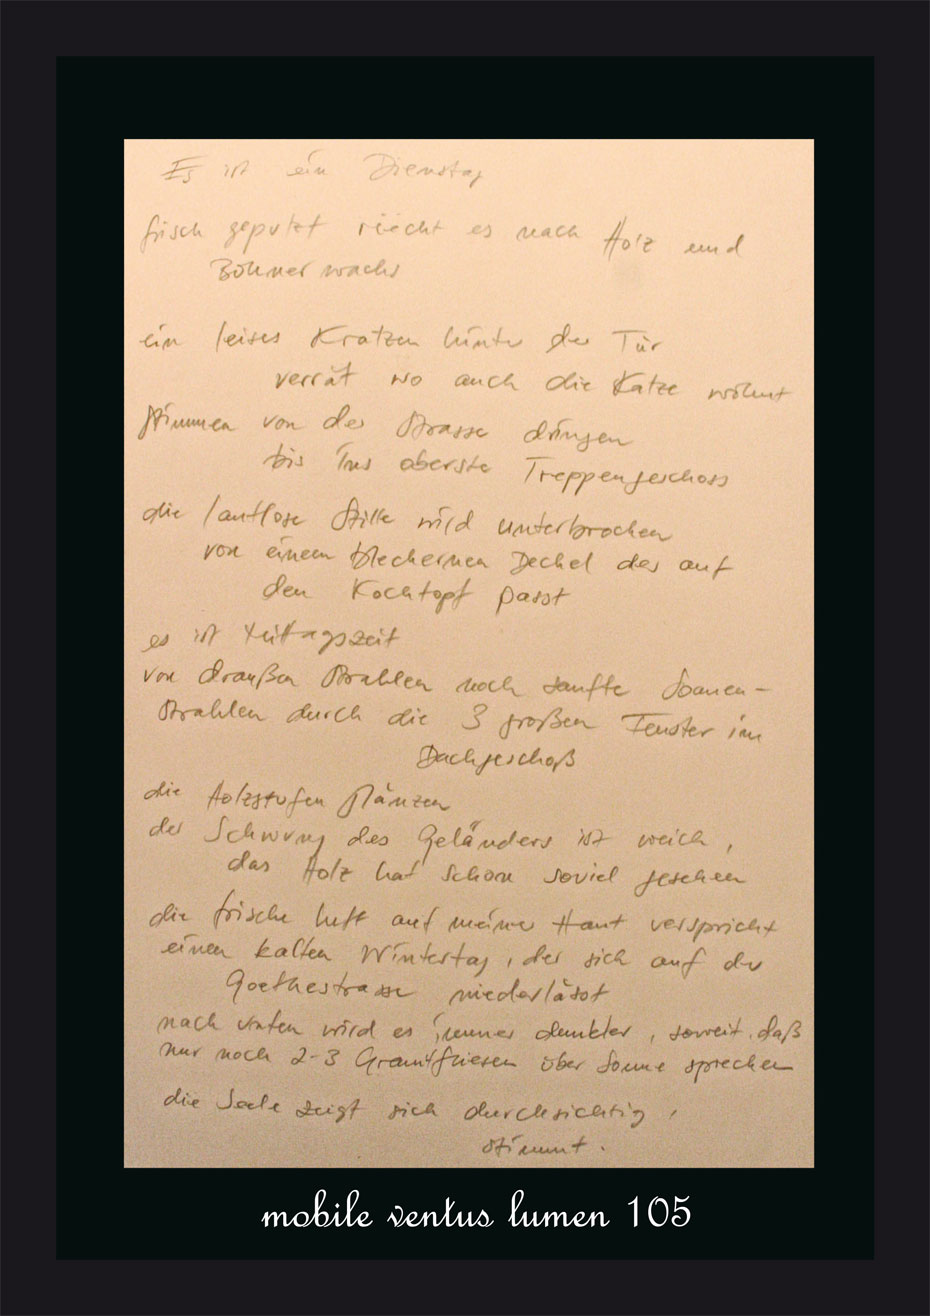 Es ist ein Dienstag
frisch geputzt riecht es nach Holz und
Bohnerwachs
ein leises Kratzen hinter der Tür
verrät wo auch die Katze wohnt
Stimmen von der Strasse dringen
bis ins oberste Treppengeschoss
die lautlose Stille wird unterbrochen
von einem blechernen Deckel der auf
den Kochtopf passt
es ist Mittagszeit
von draußen strahlen noch sanfte Sonnen-
strahlen durch die 3 großen Fenster im
Dachgeschoß
die Holzstufen glänzen
der Schwung des Geländers ist weich,
das Holz hat schon soviel gesehen
die frische Luft auf meiner Haut verspricht
einen kalten Wintertag, der sich auf der
Goethestrasse niederlässt
nach unten wird es immer dunkler, soweit, daß
nur noch 2-3 Granitfliesen über Sonne sprechen
die Seele zeigt sich durchsichtig,
stimmt.
mobile ventus lumen 105